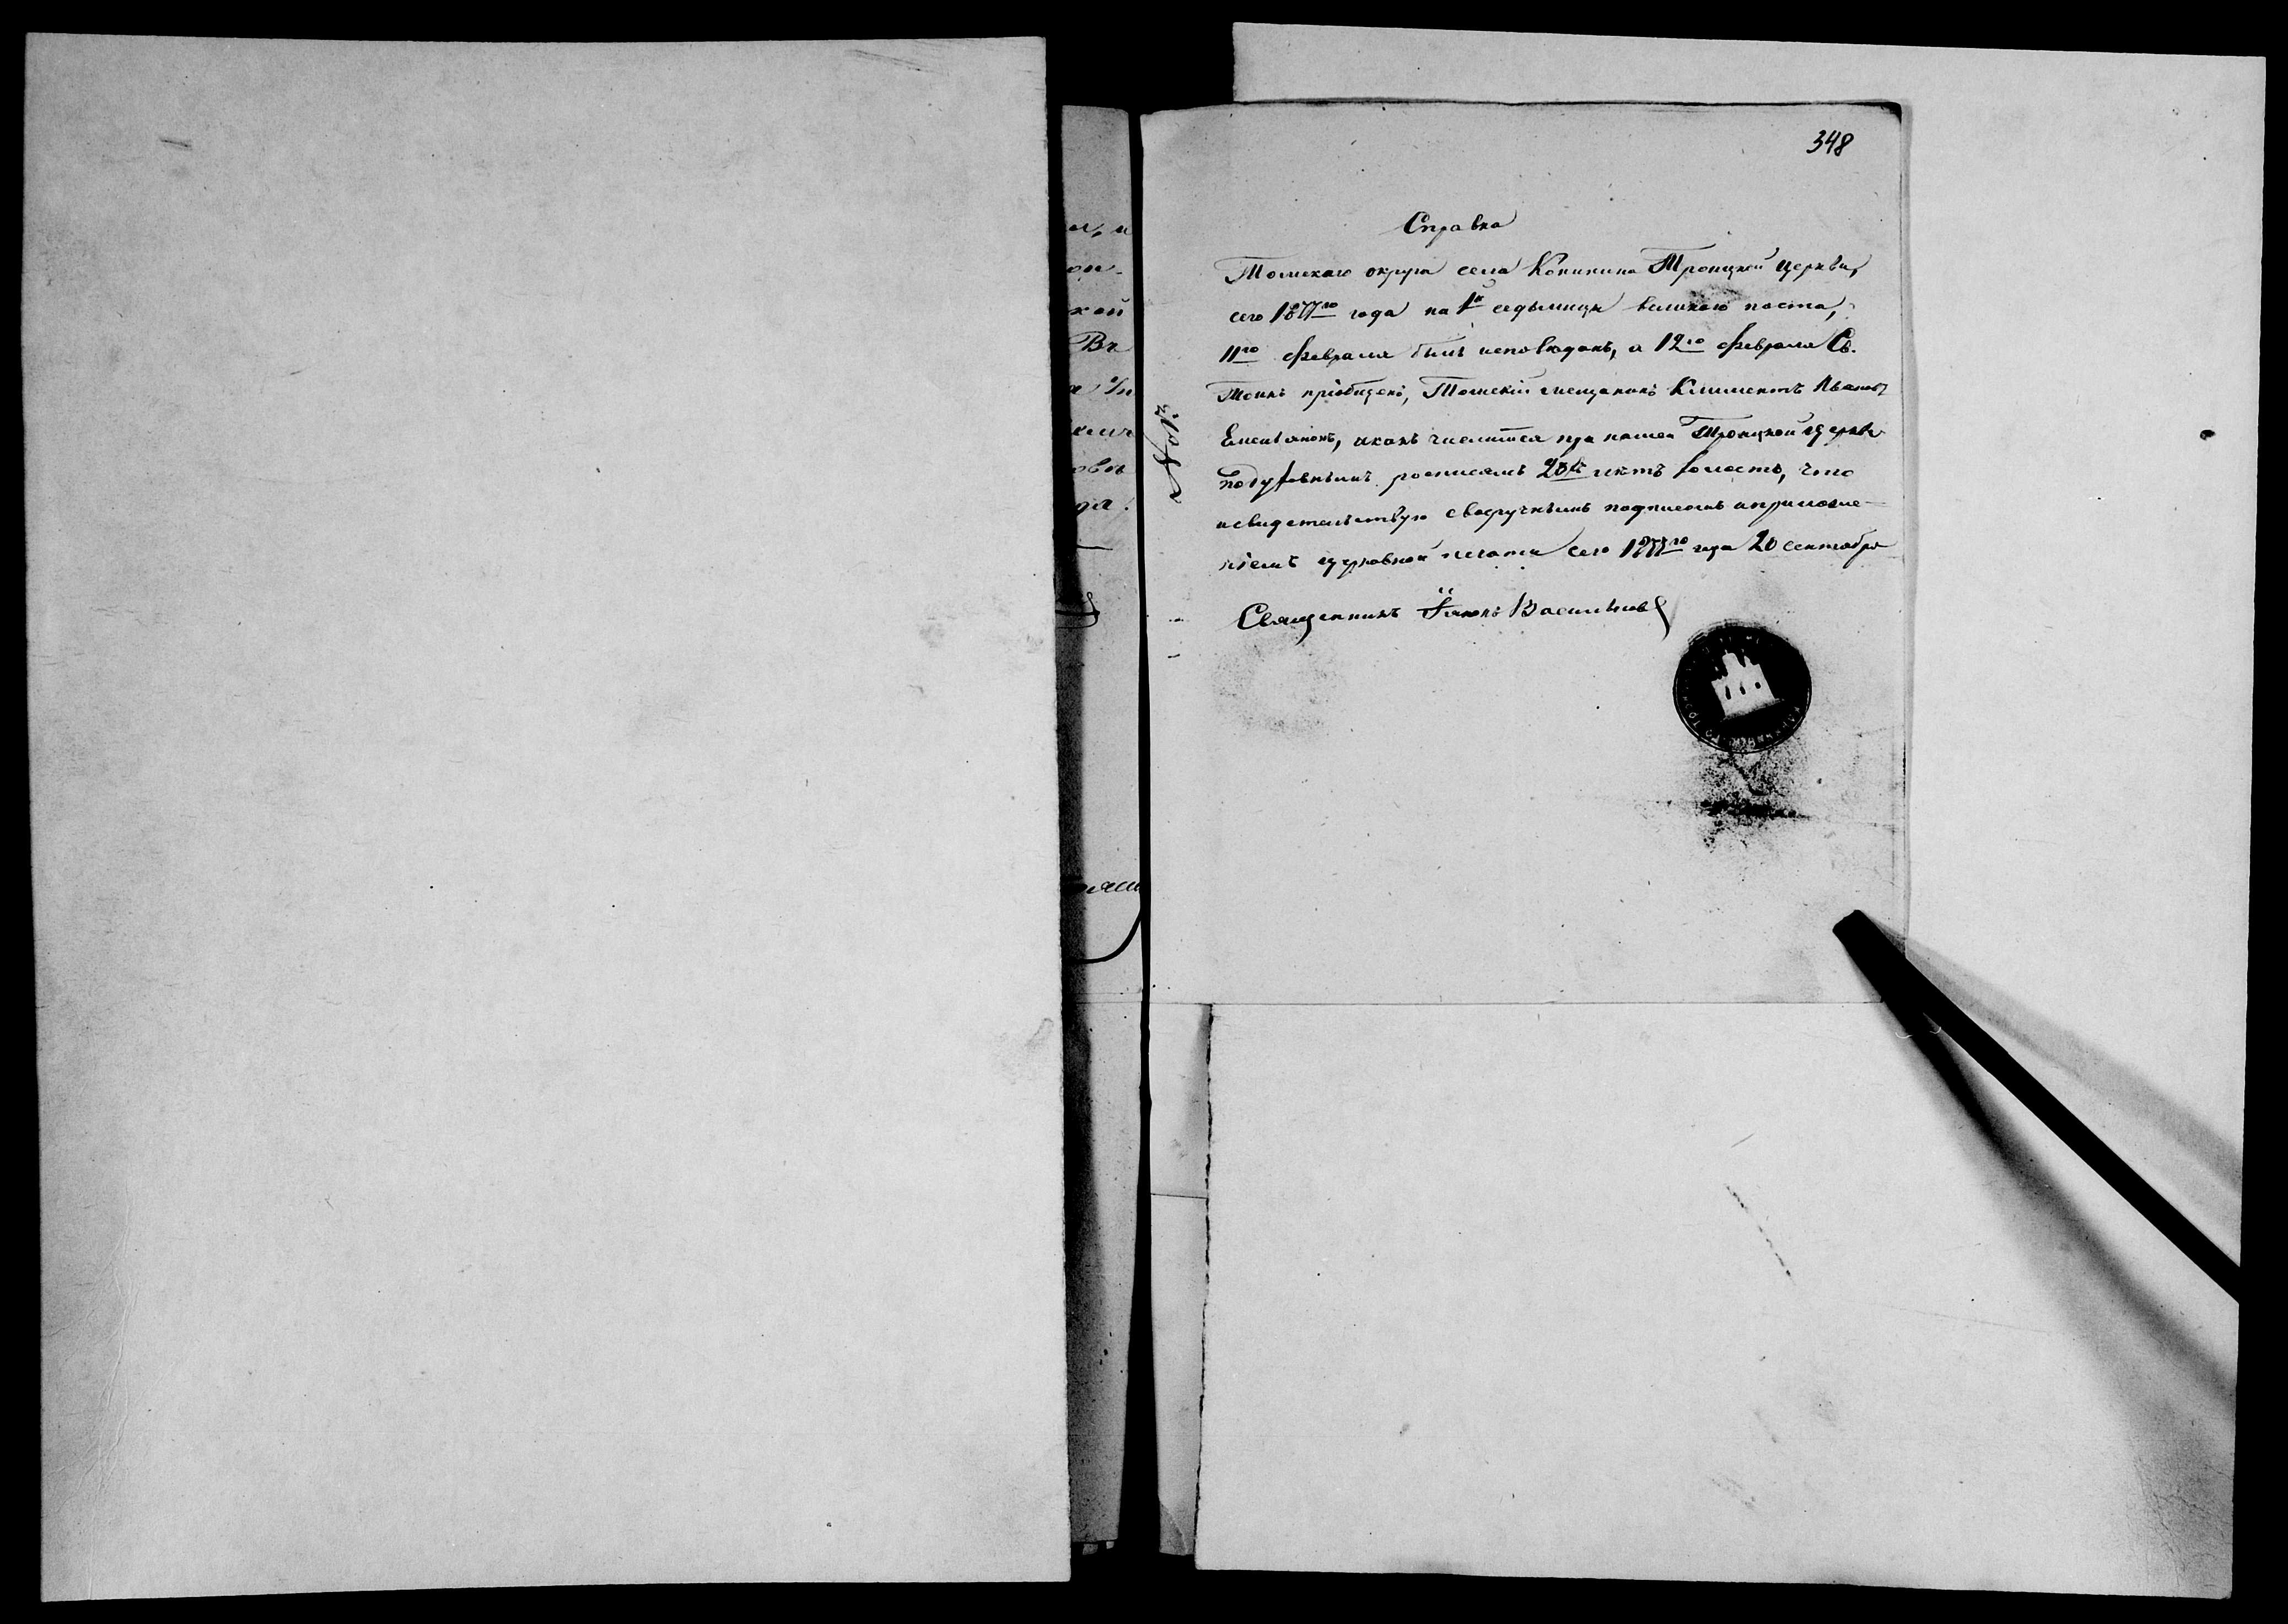 348
Справка
Томскаго округа села Конинина Троицкой церкви,
сего 1877го года на 1й седьмицѣ великаго поста,
11го февраля былъ исповѣданъ, а 12го февраля Св.
Таинъ пріобщенъ, Томскій мещанинъ Климентъ Иванов
Емельяновъ, и какъ числится при нашей Троицкой церкви
по духовнымъ росписямъ лѣтъ что
и свидетельствую своеручнымъ подписомъ и приложе-
ніемъ церковной печати сего 1877го года 20 сентября
Священникъ Іаковъ Васильков